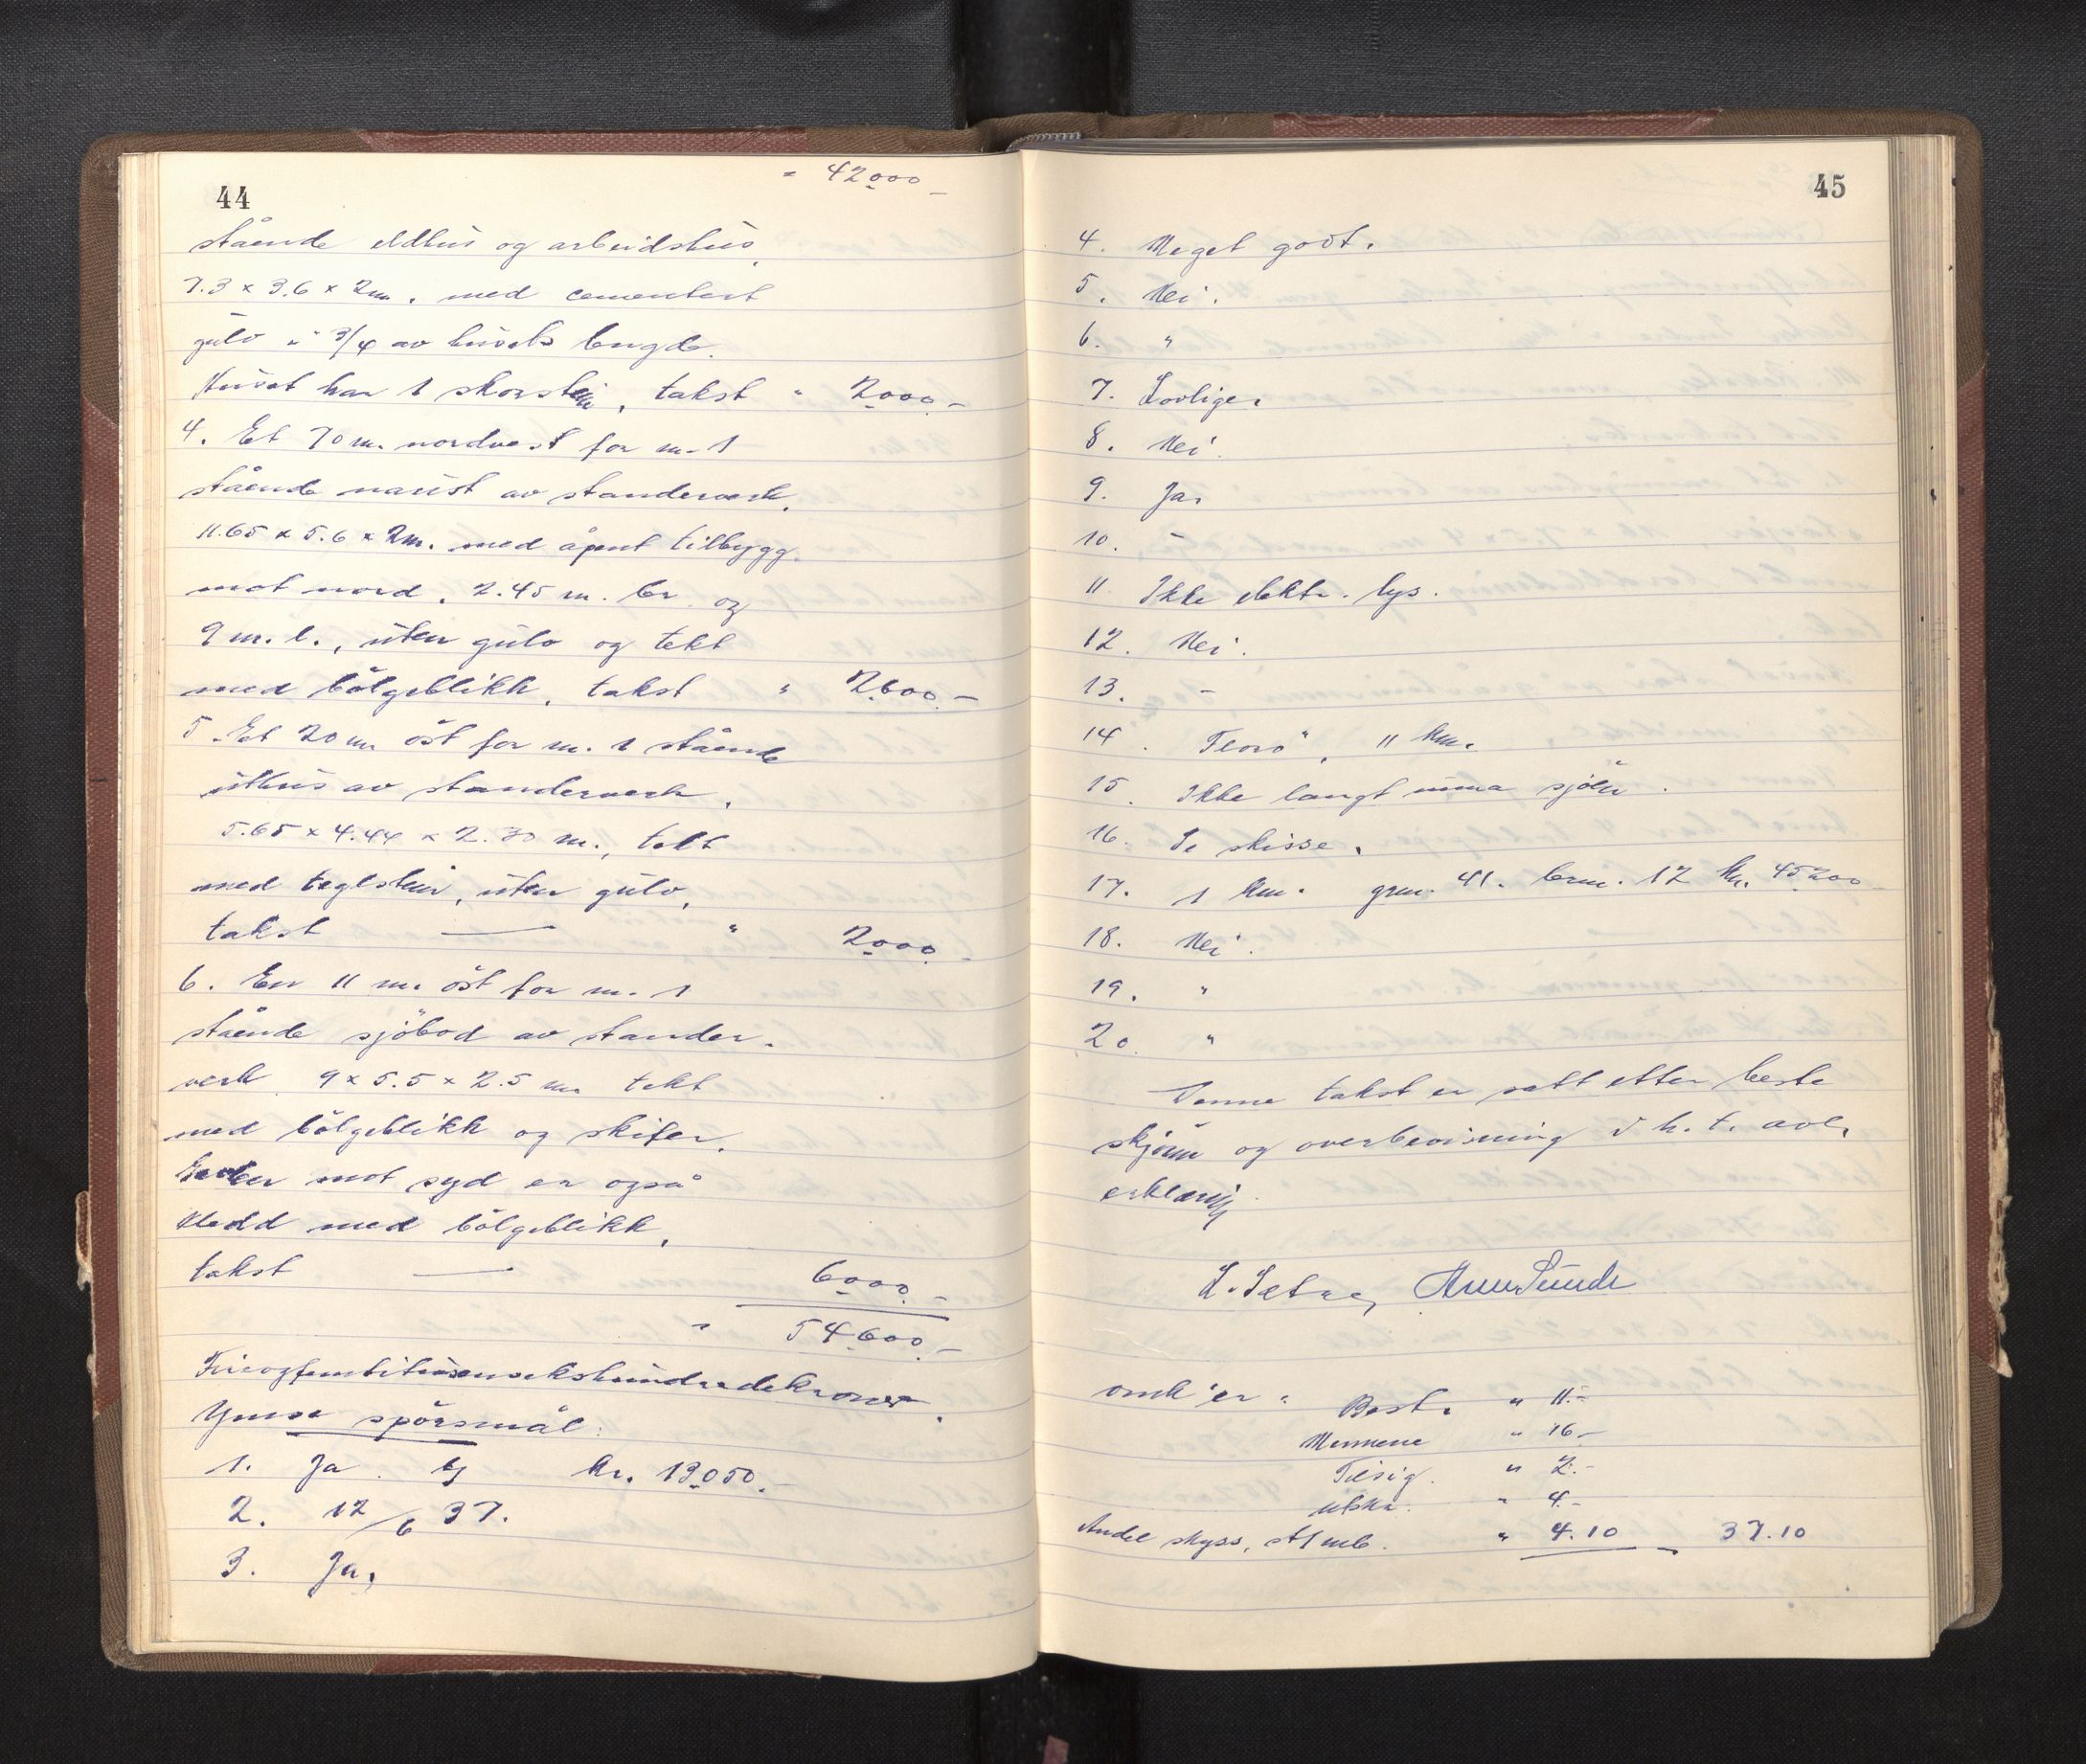 44
" 42000 -
stående eldhus og arbeidshus,
7.3 x 3.6 x 2 m. med cementert
gulv i 3/4 av husets lengde.
Huset har 1 skorstein, takst " 2000.-
4. Et 70 m. nordvest for m. 1
stående naust av standerverk,
11.65 x 5.6 x 2 m. med åpent tilbygg
mot nord, 2.45 m. br. og
9 m. l., uten gulv og tekt
med bölgeblikk, takst " 2600.-
5. Et 20 m. öst for m. 1 stående
uthus av standerverk,
5.65 x 4.44 x 2.30 m., tekt
med teglstein, uten gulv,
takst — " 2000.-
6. En 11 m. öst for m. 1
stående sjöbod av stander-
verk 9 x 5.5 x 2.5 m. tekt
med bölgeblikk og skifer.
mot syd er også
kledd med bölgeblikk,
takst — 6000.-
" 54600.-
Firiogfemtitusensekshundredekroner.
Ymse spörsmål:
1. Ja. kr. 13050.-
2. 12/6 37.
3. Ja.
45
4. Meget godt.
5. Nei.
6. "
7. Lovlige.
8. Nei.
9. Ja.
10. -
11 Ikke elektr. lys.
12. Nei.
13. -
14. "Florö", 11 km.
15. Ikke langt unna sjöen.
16. Se skisse.
17. 1 km. grm. 41. brm. 12 kr. 45200
18. Nei.
19. "
20. "
Denne takst er satt etter beste
skjönn og overbevisning i h. t. avl.
erklæring.
L. Sætre,
omk'er: Best. " 11.-
Mennene " 16-
Tilsig. " 2.-
utskr. " 4-
Andel skyss, " 4.10 37.10